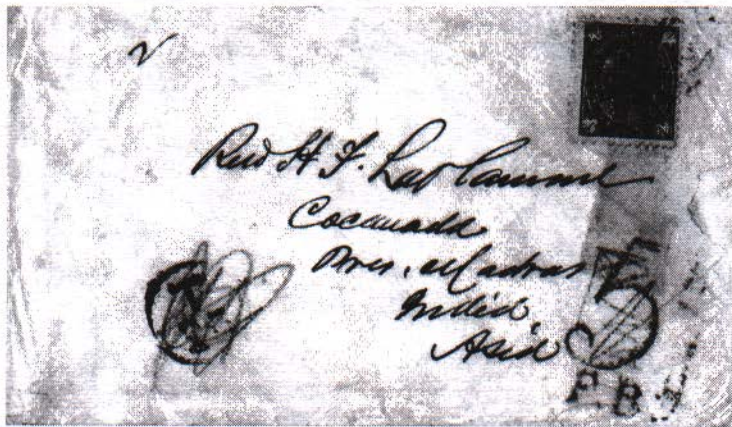 Rev H. F. Laflamme
Cocanada
Pres. Madras
India
Asia
F. B.